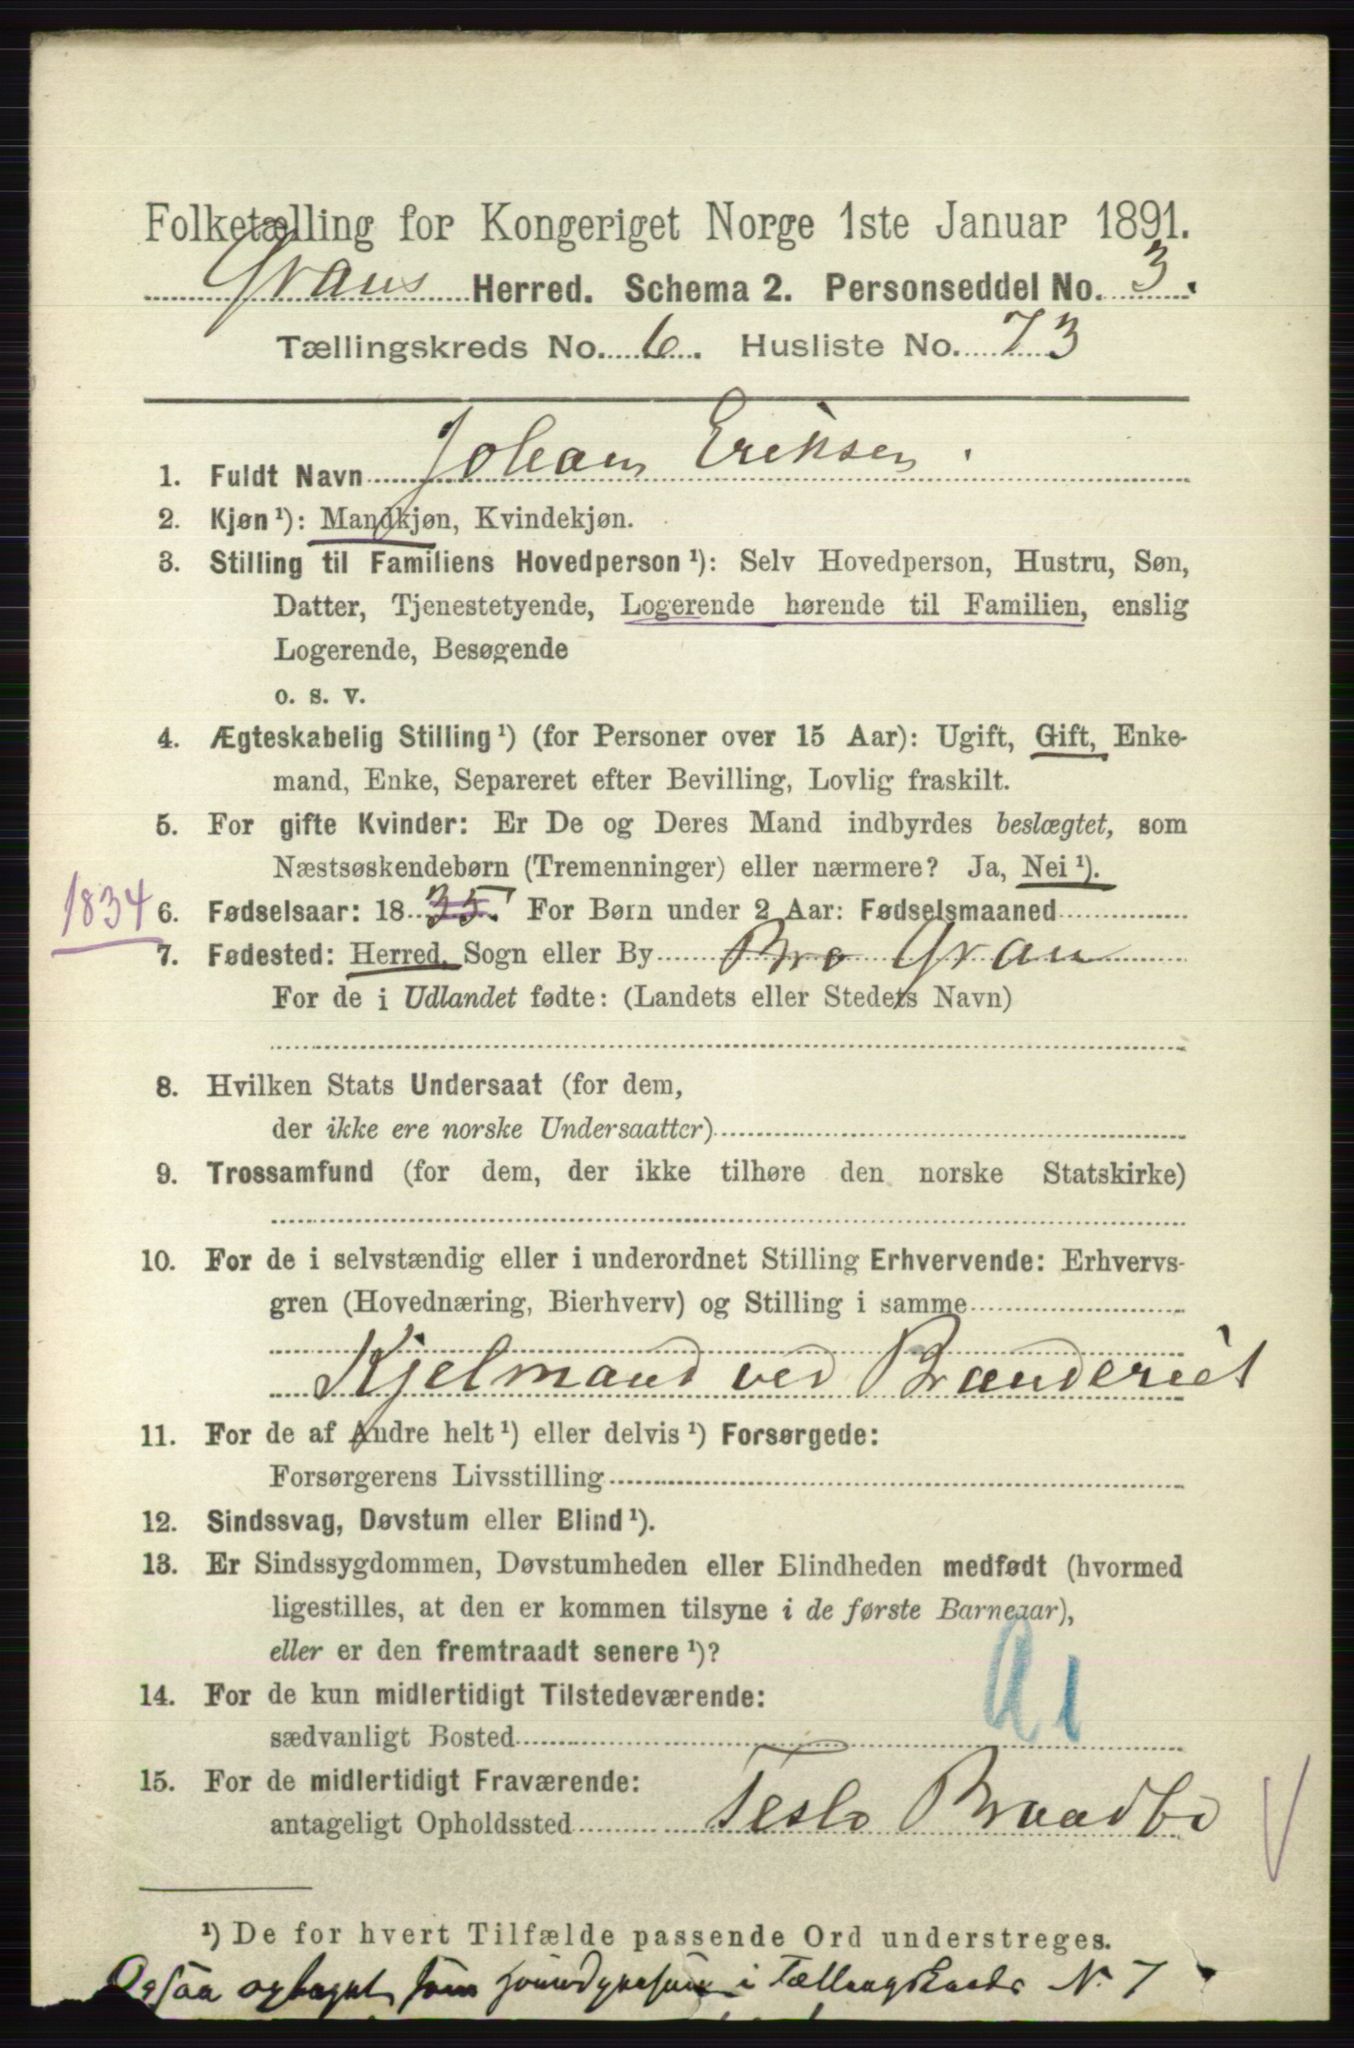 Folketælling for Kongeriget Norge 1ste Januar 1891.
Grans Herred. Schema 2. Personseddel No. 3.
Tællingskreds No. 6. Husliste No. 73
1. Fuldt Navn Johan Eriksen.
2. Kjøn ¹): Mandkjøn, Kvindekjøn.
3. Stilling til Familiens Hovedperson ¹): Selv Hovedperson, Hustru, Søn,
Datter, Tjenestetyende, Logerende hørende til Familien, enslig
Logerende, Besøgende
o. s. v.
4. Ægteskabelig Stilling ¹) (for Personer over 15 Aar): Ugift, Gift, Enke-
mand, Enke, Separeret efter Bevilling, Lovlig fraskilt.
5. For gifte Kvinder: Er De og Deres Mand indbyrdes beslægtet, som
Næstsøskendebørn (Tremenninger) eller nærmere? Ja, Nei ¹).
1834 6. Fødselsaar: 18 35. For Børn under 2 Aar: Fødselsmaaned
7. Fødested: Herred, Sogn eller By Bro Gran
For de i Udlandet fødte: (Landets eller Stedets Navn)
8. Hvilken Stats Undersaat (for dem,
der ikke ere norske Undersaatter)
9. Trossamfund (for dem, der ikke tilhøre den norske Statskirke)
10. For de i selvstændig eller i underordnet Stilling Erhvervende: Erhvervs-
gren (Hovednæring, Bierhverv) og Stilling i samme
Kjelmand ved Brænderiet
11. For de af Andre helt ¹) eller delvis ¹) Forsørgede:
Forsørgerens Livsstilling
12. Sindssvag, Døvstum eller Blind ¹).
13. Er Sindssygdommen, Døvstumheden eller Blindheden medfødt (hvormed
ligestilles, at den er kommen tilsyne i de første Barneaar),
eller er den fremtraadt senere ¹)?
14. For de kun midlertidigt Tilstedeværende:
sædvanligt Bosted
15. For de midlertidigt Fraværende:
antageligt Opholdssted Teslo Braadbø
¹) De for hvert Tilfælde passende Ord understreges.
Ogsaa optaget som i Tællingskreds N. 7